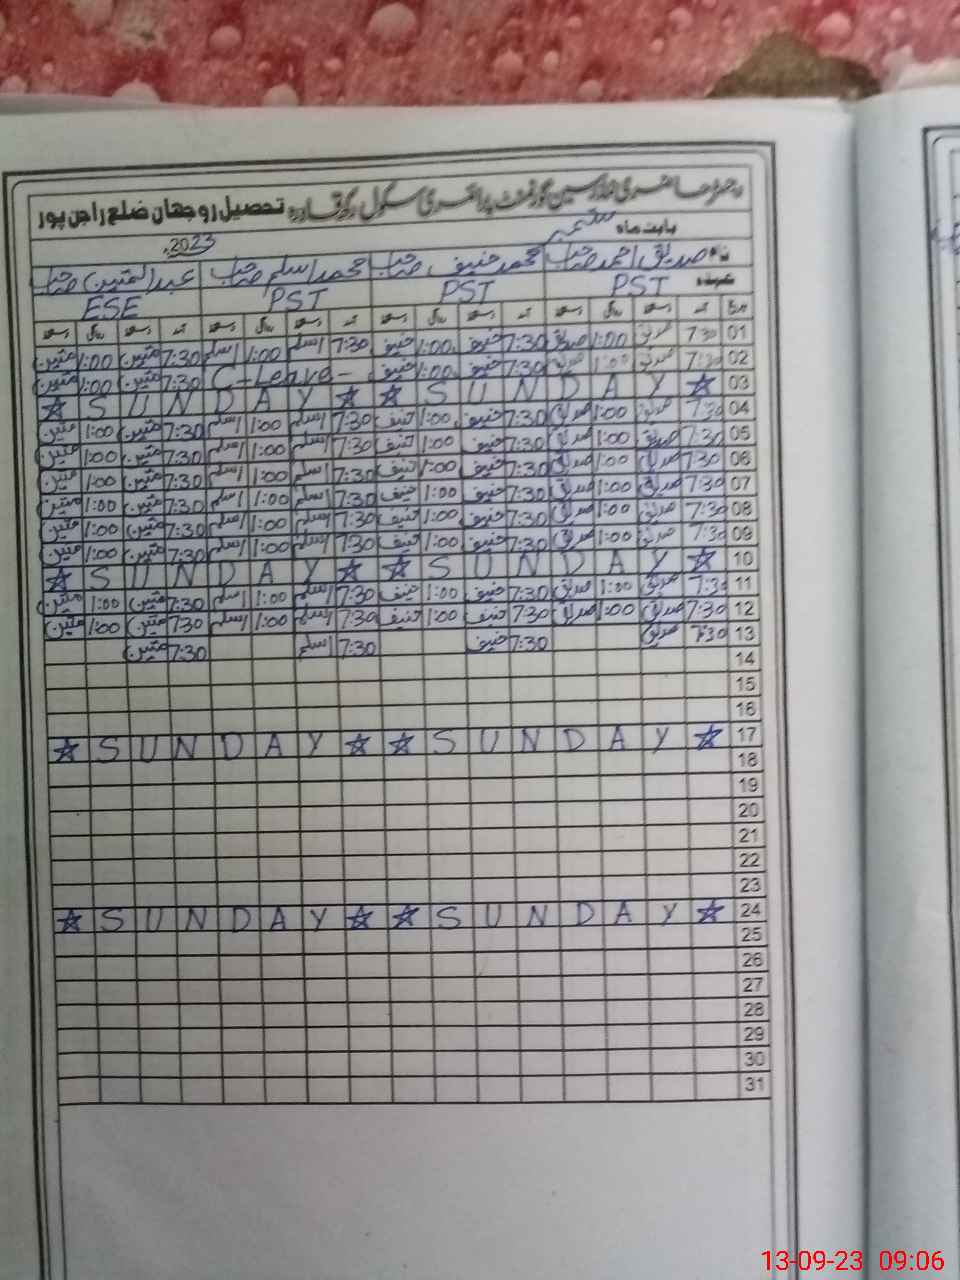 رجسٹر حاضری مدرسین گورنمنٹ پرائمری سکول تحصیل روجھان ضلع راجن پور
بابت ماہ ستمبر 2023ء
نام صدیق احمد صاحب محمد حنیف صاحب محمد اسلم صاحب عبدالمتین صاحب
عہدہ PST PST PST ESE
تاریخ آمد دستخط روانگی دستخط آمد دستخط روانگی دستخط آمد دستخط روانگی دستخط آمد دستخط روانگی دستخط
01 7:30 صدیق 1:00 صدیق 7:30 حنیف 1:00 حنیف 7:30 اسلم 1:00 اسلم 7:30 متین 1:00 متین
02 7:30 صدیق 1:00 صدیق 7:30 حنیف 1:00 حنیف C-Leave- 7:30 متین 1:00 متین
03 ☆ S U N D A Y ☆ ☆ S U N D A Y ☆
04 7:30 صدیق 1:00 صدیق 7:30 حنیف 1:00 حنیف 7:30 اسلم 1:00 اسلم 7:30 متین 1:00 متین
05 7:30 صدیق 1:00 صدیق 7:30 حنیف 1:00 حنیف 7:30 اسلم 1:00 اسلم 7:30 متین 1:00 متین
06 7:30 صدیق 1:00 صدیق 7:30 حنیف 1:00 حنیف 7:30 اسلم 1:00 اسلم 7:30 متین 1:00 متین
07 7:30 صدیق 1:00 صدیق 7:30 حنیف 1:00 حنیف 7:30 اسلم 1:00 اسلم 7:30 متین 1:00 متین
08 7:30 صدیق 1:00 صدیق 7:30 حنیف 1:00 حنیف 7:30 اسلم 1:00 اسلم 7:30 متین 1:00 متین
09 7:30 صدیق 1:00 صدیق 7:30 حنیف 1:00 حنیف 7:30 اسلم 1:00 اسلم 7:30 متین 1:00 متین
10 ☆ S U N D A Y ☆ ☆ S U N D A Y ☆
11 7:30 صدیق 1:00 صدیق 7:30 حنیف 1:00 حنیف 7:30 اسلم 1:00 اسلم 7:30 متین 1:00 متین
12 7:30 صدیق 1:00 صدیق 7:30 حنیف 1:00 حنیف 7:30 اسلم 1:00 اسلم 730 متین 1:00 متین
13 7:30 صدیق 7:30 حنیف 7:30 اسلم 7:30 متین
14
15
16
17 ☆ S U N D A Y ☆ ☆ S U N D A Y ☆
18
19
20
21
22
23
24 ☆ S U N D A Y ☆ ☆ S U N D A Y ☆
25
26
27
28
29
30
31
13-09-23 09:06